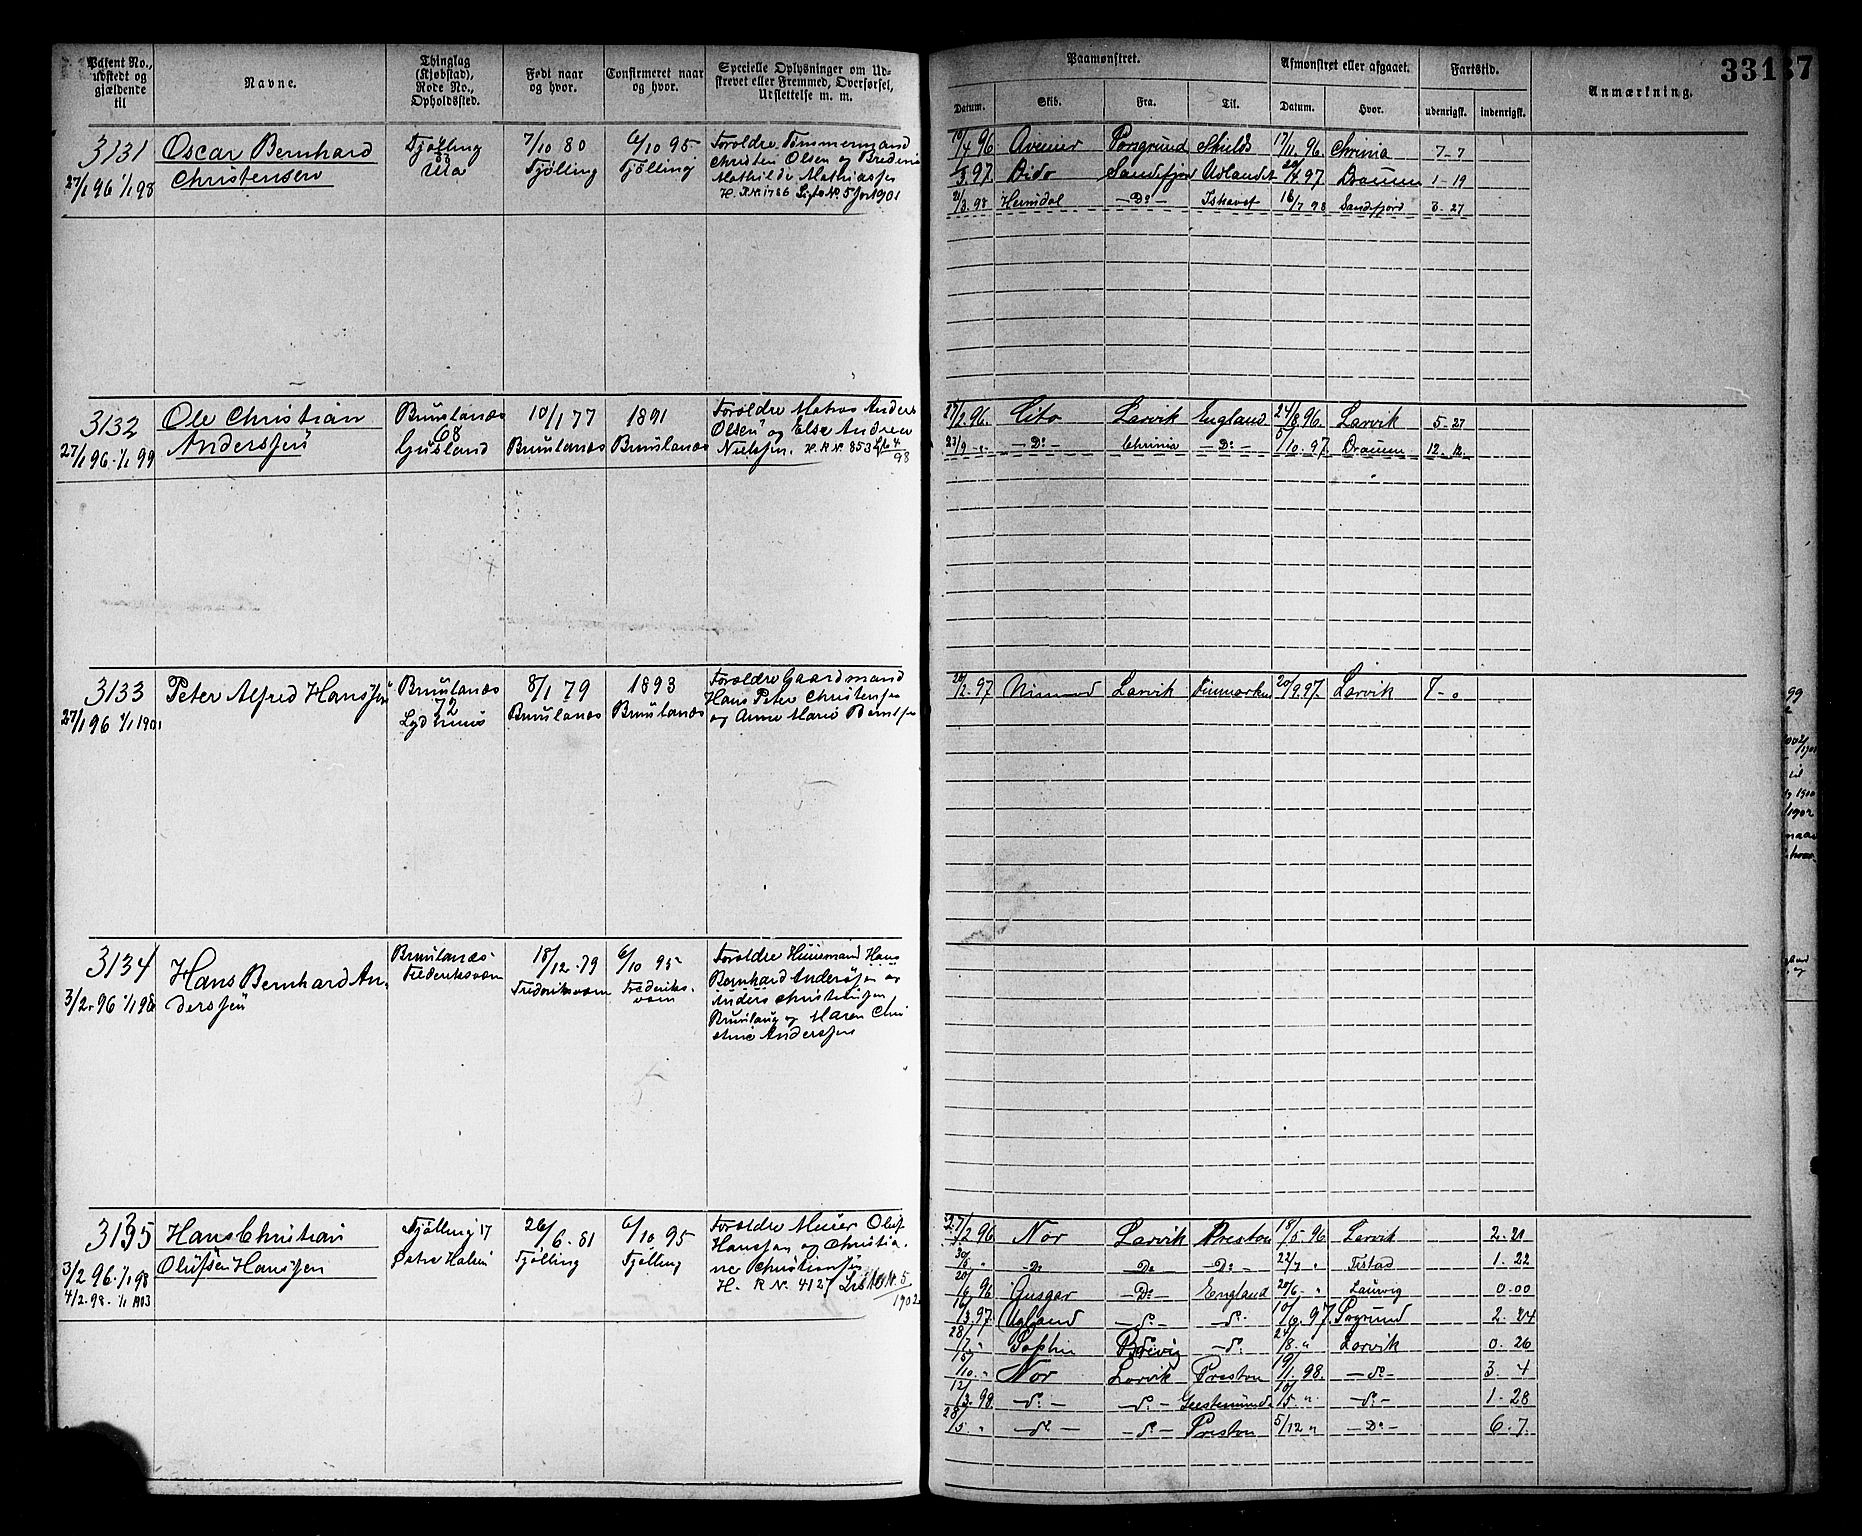 Patent No., udstedt og gjældende til
Navne.
Thinglag (Kjøbstad), Rode No., Opholdssted.
Født naar og hvor.
Confirmeret naar og hvor.
Specielle Oplysninger om Udstrevet eller Fremmed, Overførsel, Utslettelse m. m.
Paamønstret.
Afmønstret eller afgaaet.
Fartstid.
Anmærkning.
33187
Datum.
Skib.
Fra.
Til.
Datum.
Hvor.
udenrigsk.
indenrigsk.
3131
27/1 96 1/1 98
Oscar Bernhard
Christensen
Tjølling
Ula
7/10 80
Tjølling
6/10 95
Tjølling
Forældre Tømmermand
Christen Olsen og
Mathilde Mathiassen
19/4 96 Porsgrund Shields 17/11 96. Chrinia 7-7
97 Dido Sandefjord Udlandet 97 1-19
98 Heimdal -Do- Ishavet 18/7 98 Sandefjord 3-27
3132
27/1 96. 1/1 99
Ole Christian
Anderssen
Brunlanæs
68
Gusland
10/1 77
Brunlanæs
1891
Brunlanæs
Forældre Matros Anders
Olsen og Else Andrea
Nielssen. H. R N. 853
27/2 96. Cito Larvik England 24/8 96. Larvik 5-27
-Do- Chrinia -Do- 5/10. 97.
3133
27/1 96 1/1 1901
Peter Alfred Hanssen
Brunlanæs
72
8/1 79
Brunlanæs
1893
Brunlanæs
Forældre Gaardmand
Hans Peter Christensen
og Anne Marie
97 Larvik Finmarken 20/9 97. Larvik 7-0
3134
3/2. 96 1/1 98
Hans Bernhard An-
derssen
Brunlanæs
Frederiksværn
18/12. 79
Frederiksværn
6/10 95
Frederiks-
værn
Forældre Huusmand Hans
Bernhard Anderssen og
Anders Christiansen
og Maren Chri
stine Anderssen
3135
3/2 96. 1/1 98
4/2. 98. 1/1 1903
Hans Christian
Olufsen Hanssen
Tjølling 17
Østre Halsen
26/6. 81
Tjølling
6/10 95
Tjølling
Forældre Murer Oluf
Hanssen og Christia-
ne Christianssen
H. R N. 4127 Liste N. 5
1902
27/2 96 Nor Larvik Preston 18/5 96 Larvik 2.21
Do Do -Do- 22/7 " 1. 22
96 -Do- England 20/6 " Laurvig 0.00
97. -do- -do- 97. 2. 24
28/7 " Sophie Brevig -do- 24/8. " Larvik 0. 26
15/10. " Nor Larvik Preston 19/1. 98. -do- 3 4
12/3. 98 -do- -do- Geestemünde 10/5 " -do- 1-28
28/5. " -do- -do- Preston 5/12 " -Do- 6.7.